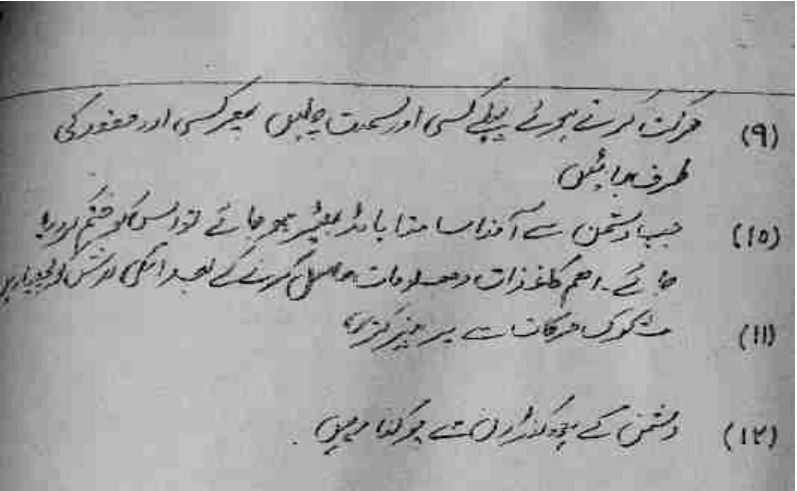 (۹) حرکت کرتے ہوئے پہلے کسی اور سمت چلیں پھر کسی اور مقصود کی
طرف جائیں
(۱۰) جب دشمن سے آمنا سامنا ہو جائے تو اس کو ختم کر دیا
جائے۔ اہم کاغذات و معلومات حاصل کرنے کے بعد اسکی لاش
(۱۱) مشکوک حرکات سے پرہیز کریں
(۱۲) دشمن کے سے چوکنا رہیں۔